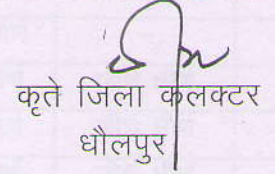 कृते जिला कलक्टर
धौलपुर